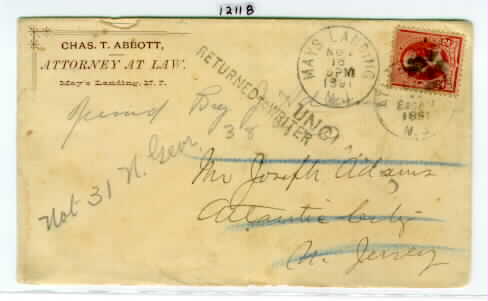 12118
CHAS. T. ABBOTT,
ATTORNEY AT LAW.
May's Landing, N. J.
MAYS LANDING
18
6PM
1891
N.J.
RETURNED TO WRITER
UNC
38
1891
N.J.
Not 31 N. Geor.
Mr Joseph Adams
Atlantic City
N. Jersey